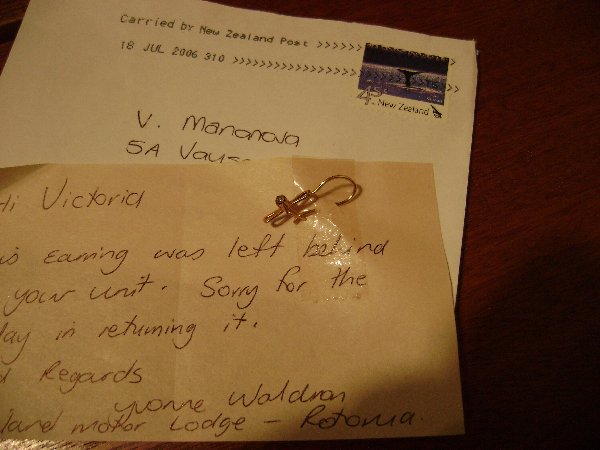 Carried by New Zealand Post >>>>>>
18 JUL 2006 310 >>>>>>>>>>>>>>>>>>>>
45c New Zealand
V. Mananova
5A
Hi Victoria
is earring was left behind
your unit. Sorry for the
lay in returning it.
d Regards
Yvonne Waldron
land motor Lodge - Rotorua.